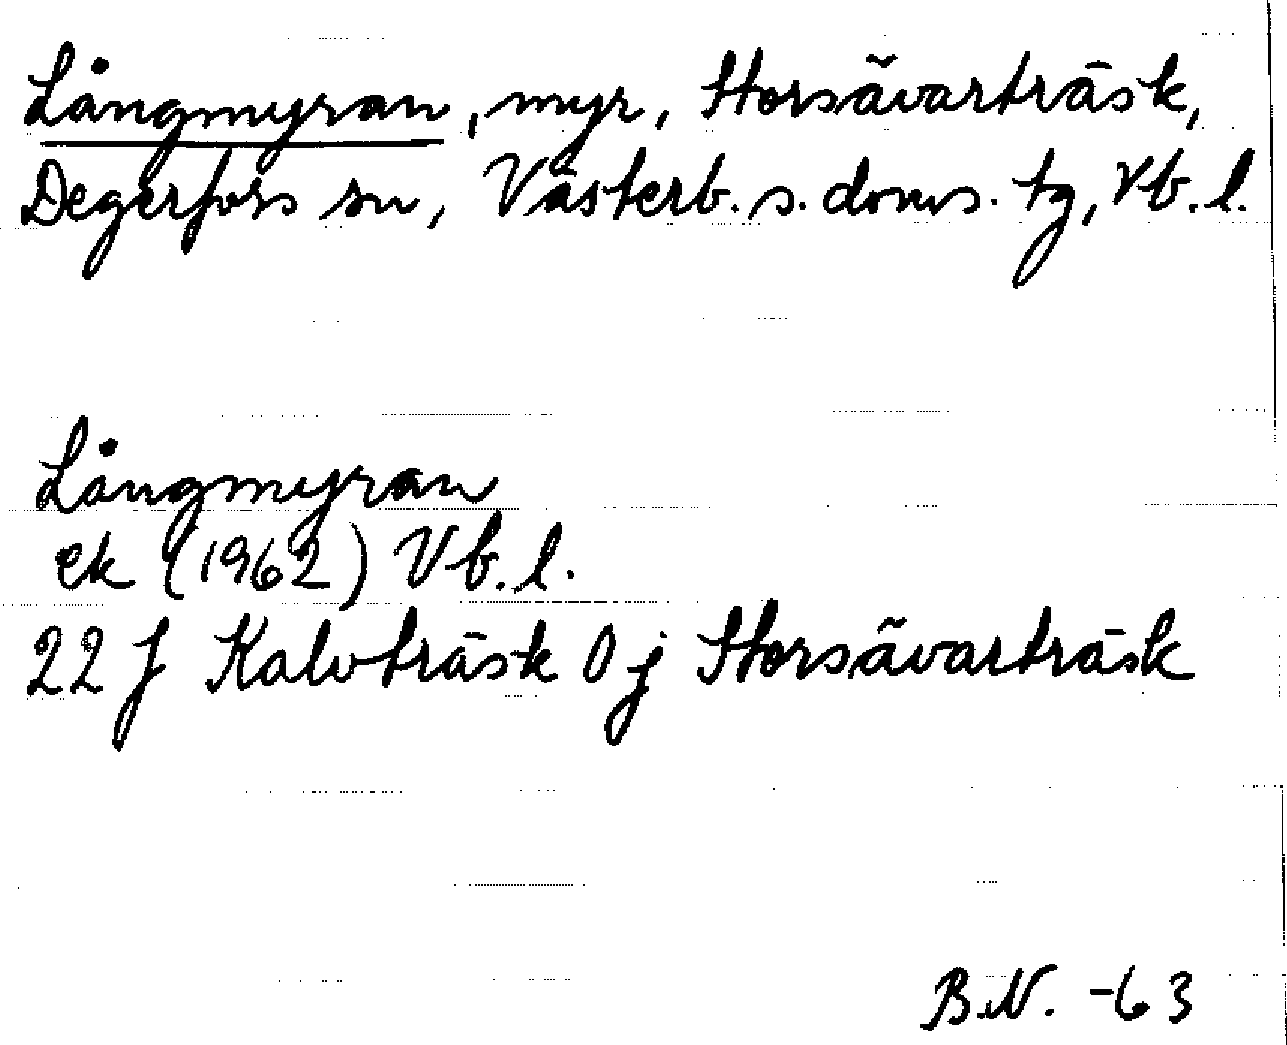 Långmyran, myr, Storsävarträsk,
Degerfors sn, Västerb. s. doms. tg, Vb. l.
Långmyran
ek (1962) Vb. l.
22 J Kalvträsk 0 j Storsävarträsk
B.N. -63